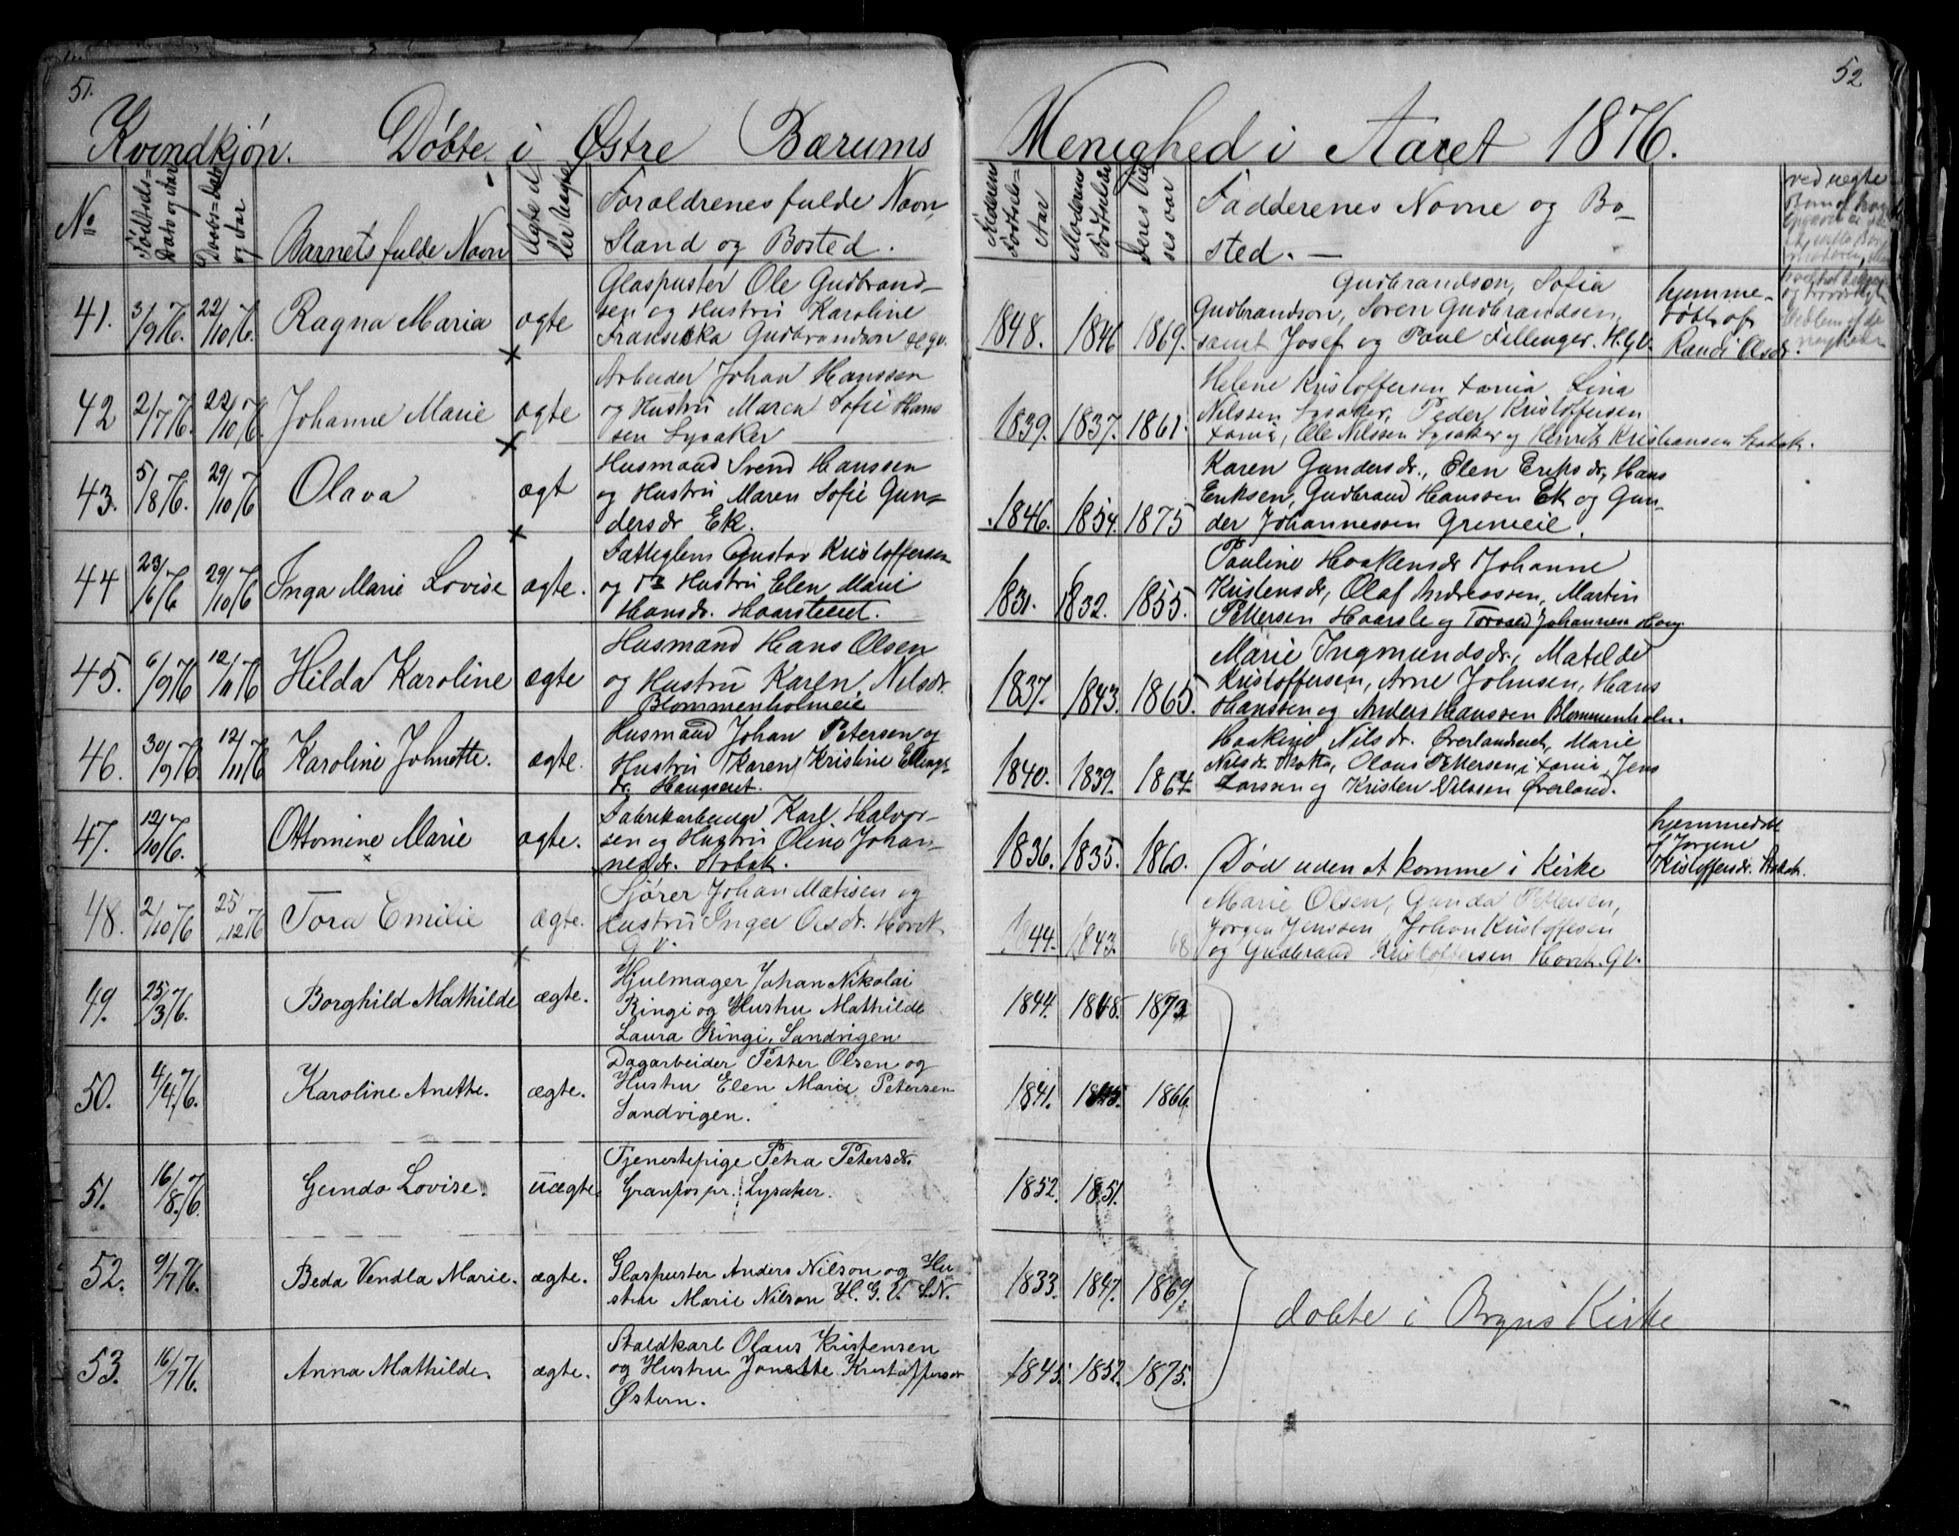 51.
Kvindkjøn. Døbte i Østre Bærums
No
Fødsels=
Dato og Aar
Daabs=Dato
og Aar
Barnets fulde Navn
Ægte el
ler Uægte
Foraldrenes fulde Navn,
Stand og Bosted.
41. 3/9 76. 22/10 76. Ragna Maria ægte
Glaspuster Ole Gudbrand-
sen og Hustru Karoline
Fransiska Gudbrandsen H.G.V.
42 2/7 76. 22/10 76. Johanne Marie ægte
Arbeider Johan Hanssen
og Hustru Maren Sofie Hans
sen Lysaker
43. 5/8 76. 29/10 76 Olava ægt
Husmand Svend Hanssen
og Hustru Maren Sofie Gun-
dersdr Ek.
44 23/6 76 29/10 76 Inga Marie Lovise ægte.
Fattiglem Gustav Kristoffersen
og Hustru Elen Marie
Hansdr. Haarsleiet.
45. 6/9 76 12/11 76 Hilda Karoline ægte
Husmand Hans Olsen
og Hustru Karen Nilsdr.
Blommenholmeie
46. 30/9 76 12/11 76 Karoline Johnette. ægte.
Husmand Johan Petersen og
Hustru Karen Kristine Ellings
dr. Haugseiet.
47. 12/10 76. Ottomine Marie ægte.
Fabrikarbeider Karl Halvor-
sen og Hustru Oline Johan-
nesdr. Stabæk.
48. 2/10 76 25/12 76 Tora Emilie ægte.
Sjører Johan Matisen og
Hustru Inger Olsdr. Høvik
G.V.
49. 25/3 76. Borghild Mathilde ægte.
Hjulmager Johan Nikolai
Ringi og Hustru Mathilde
Laura Ringi, Sandvigen
50. 4/4 76. Karoline Anette. ægte.
Dagarbeider Petter Olsen og
Hustru Elen Marie Petersen
Sandvigen.
51. 16/8 76. Gunda Lovise. uægte
Tjenestepige Petra Petersdr.
Granfos pr. Lysaker.
52. 9/7 76. Beda Vendla Marie. ægte.
Glaspuster Anders Nilson og Hu
stru Marie Nilson H. G. V. L.N.
53. 16/7 76. Anna Mathilde. ægte.
Staldkarl Olaus Kristensen
og Hustru Jonette Kristoffersen
Østern.
52
Menighed i Aaret 1876.
Faderens
Fødsels=
Aar
Moderens
Fødselsaar
Deres Viel
ses aar
Fadderenes Navne og Bo-
sted. —
ved uægte
1848. 1846 1869.
Gudbrandsen, Sofia
Gudbrandson, Soren Gudbrandsen,
samt Josef og Paul Fellinger. H.G.V.
hjemme-
døbt af
Randi Olsdr.
1839. 1837. 1861.
Helene Kristoffersen Xania, Lina
Nilssen Lysaker, Peder Kristoffersen
Xania, Ole Nilssen Lysaker og Henrik Kristiansen Stabæk.
1846. 1854. 1875
Karen Gundersdr., Elen Eriksdr, Hans
Eriksen, Gudbrand Hanssen Ek og Gun-
der Johannessen Grinieie.
1831. 1832. 1855.
Pauline Haakensdr Johanne
Kristensdr, Olaf Andreassen, Martin
Pettersen Haarsle og Torvald Johannsen Haug
1837. 1843. 1865.
Marie Ingmundsdr., Matilde
Kristoffersen, Arne Johnsen, Hans
Hanssen og Anders Hanssen Blommenholm.
1840. 1839. 1864.
Haakine Nilsdr. Øverlandseiet, Marie
Nilsdr. Skotta, Olaus Pettersen, i Xania, Jens
Larssen og Kristen Nilssen Øverland.
1836. 1835. 1860.
Død uden at komme i Kirke
hjemmedøbt
af Jørgine
Kristoffersdr. Stabæk.
1844. 1843. 68
Marie Olsen, Gunda Pettersen,
Jørgen Jenssen, Johan Kristoffesen
og Gudbrand Kristoffersen Høvik. G.V.
1844. 1848. 1873
1841. 1845. 1866.
1852. 1851.
1833. 1847. 1869.
døbte i Bryns Kirke
1845. 1852. 1875.